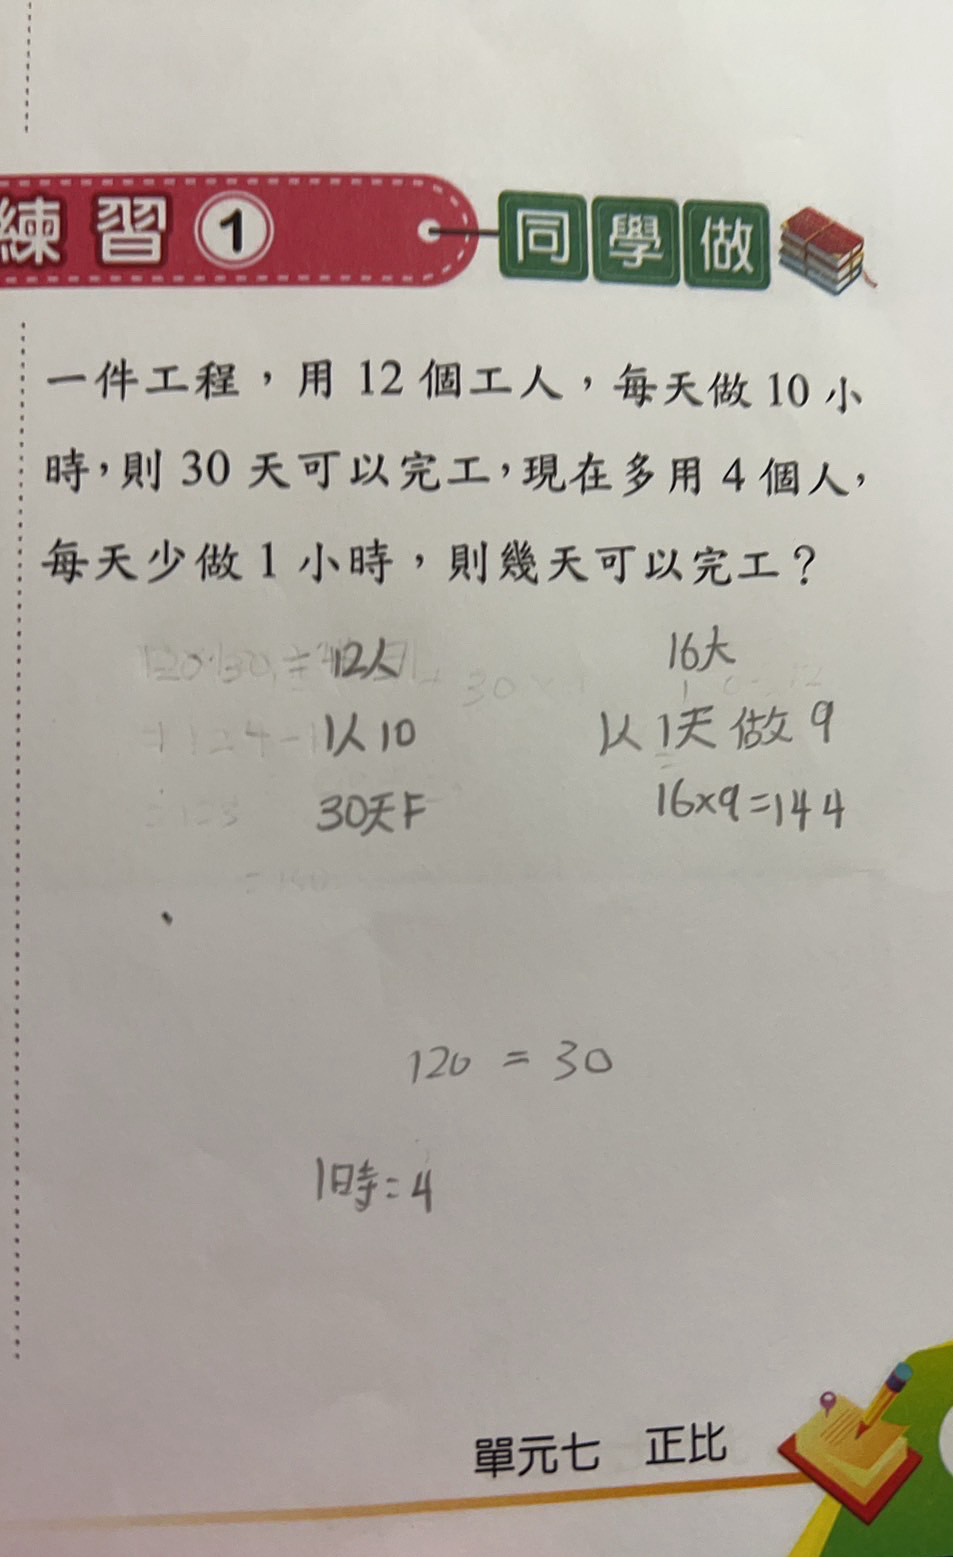 練習1 同學做
一件工程，用 12 個工人，每天做 10 小
時，則 30 天可以完工，現在多用 4 個人，
每天少做 1 小時，則幾天可以完工？
12人 16大
1人10 1人1天做9
30天F 16×9=144
120 = 30
1時=4
單元七 正比